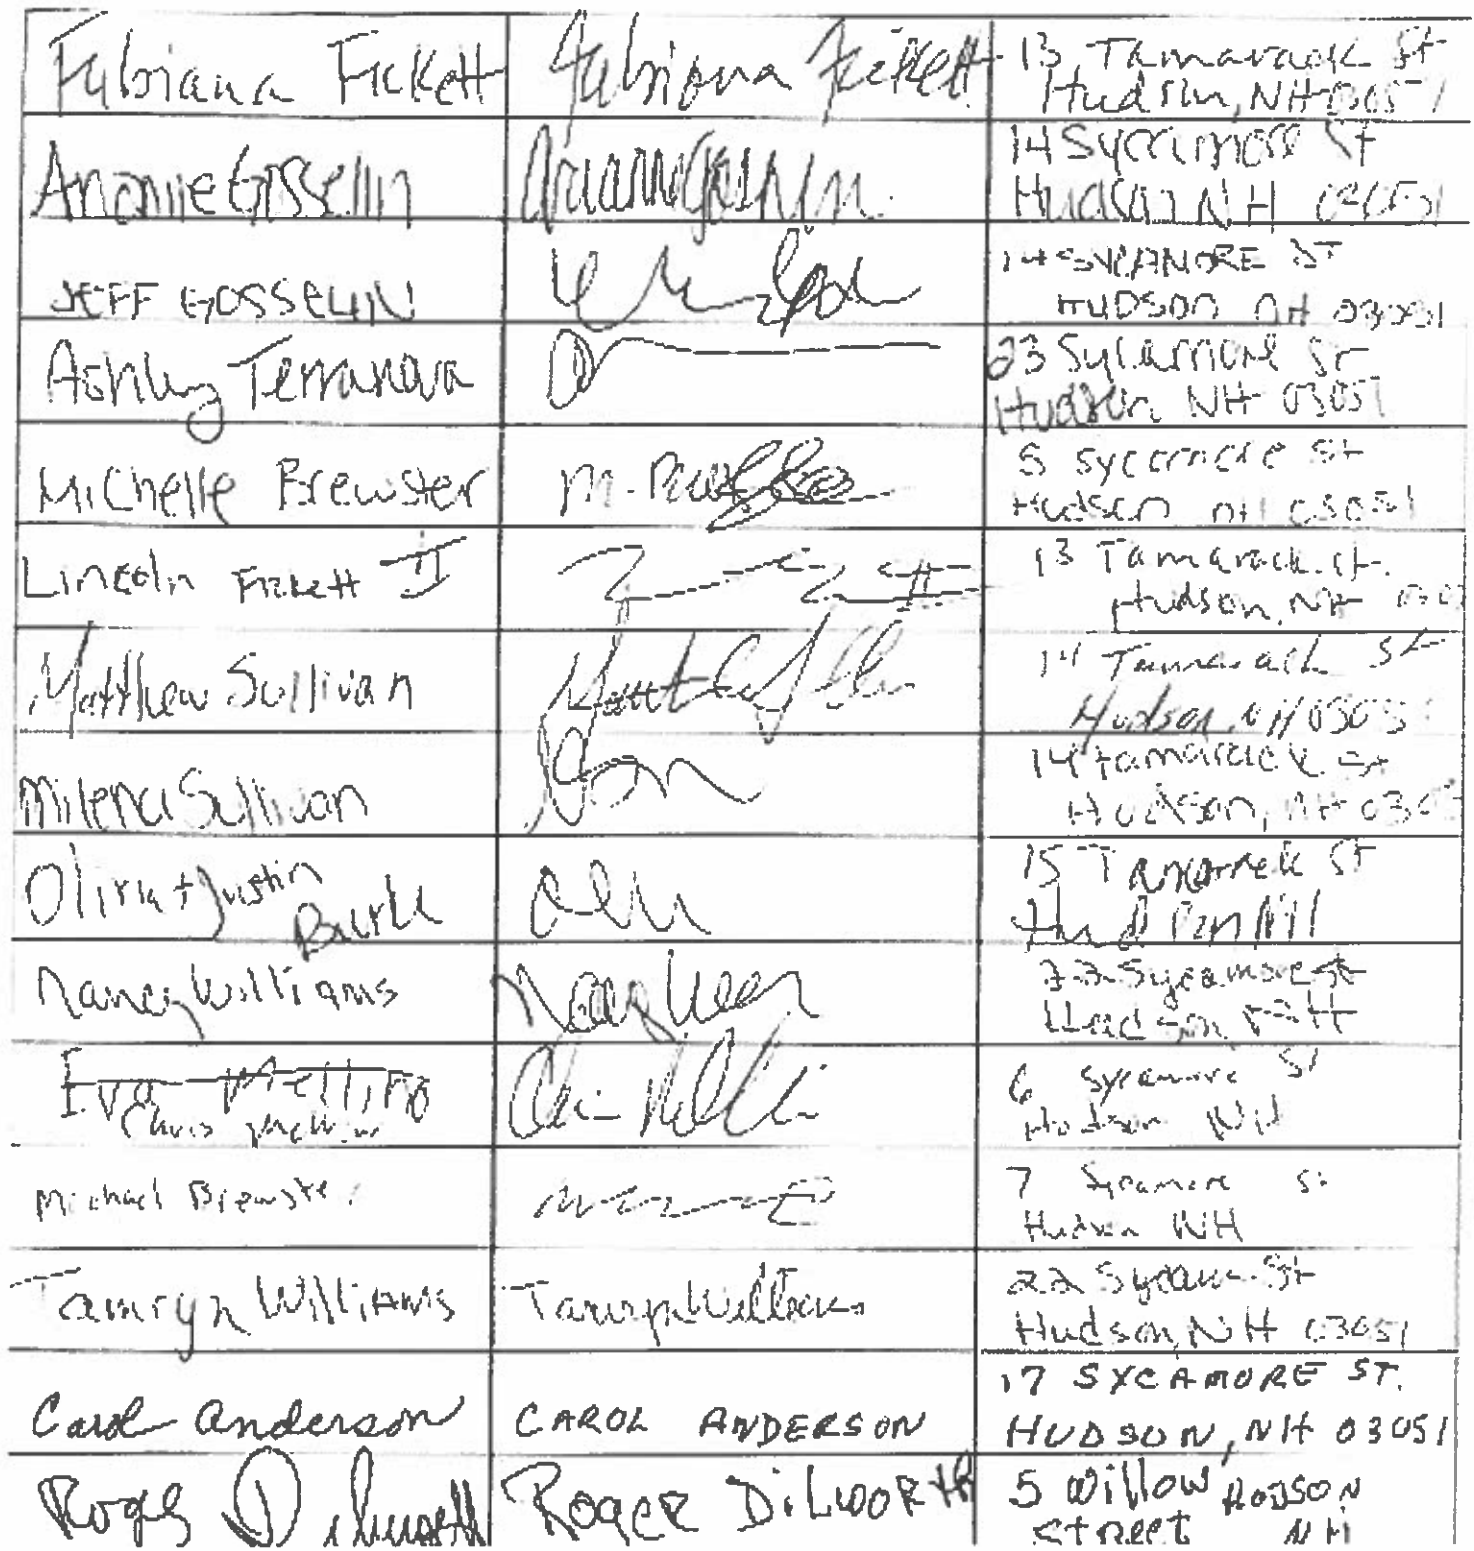 Fabiana Fickett Fabiana Fickett 13 Tamarack St
Hudson, NH 03051
Annmie Gosselin 14 Sycamore St
Hudson NH 03051
JEFF GOSSELIN 14 SYCAMORE ST
HUDSON NH 03051
Ashley Terranova 23 Sycamore St
Hudson NH 03051
Michelle Brewster M. 8 Sycamore St
Hudson NH 03051
Lincoln Fickett II 13 Tamarack St.
Hudson, NH
Matthew Sullivan 14 Tamarack St
Hudson, NH 03051
Milena Sullivan 14 Tamarack St
Hudson, NH
Olivia + Justin 15 Tamarack St
Burke Hudson NH
Nancy Williams 22 Sycamore St
Hudson, NH
Eva Mellino 6 Sycamore St
Chris Mellino Hudson NH
Michael Brewster 7 Sycamore St
Hudson NH
Tamryn Williams Tamryn Williams 22 Sycamore St
Hudson, NH 03051
Carol Anderson CAROL ANDERSON 17 SYCAMORE ST.
HUDSON, NH 03051
Roger Dilworth ROGER DILWORTH 5 Willow HUDSON
Street NH